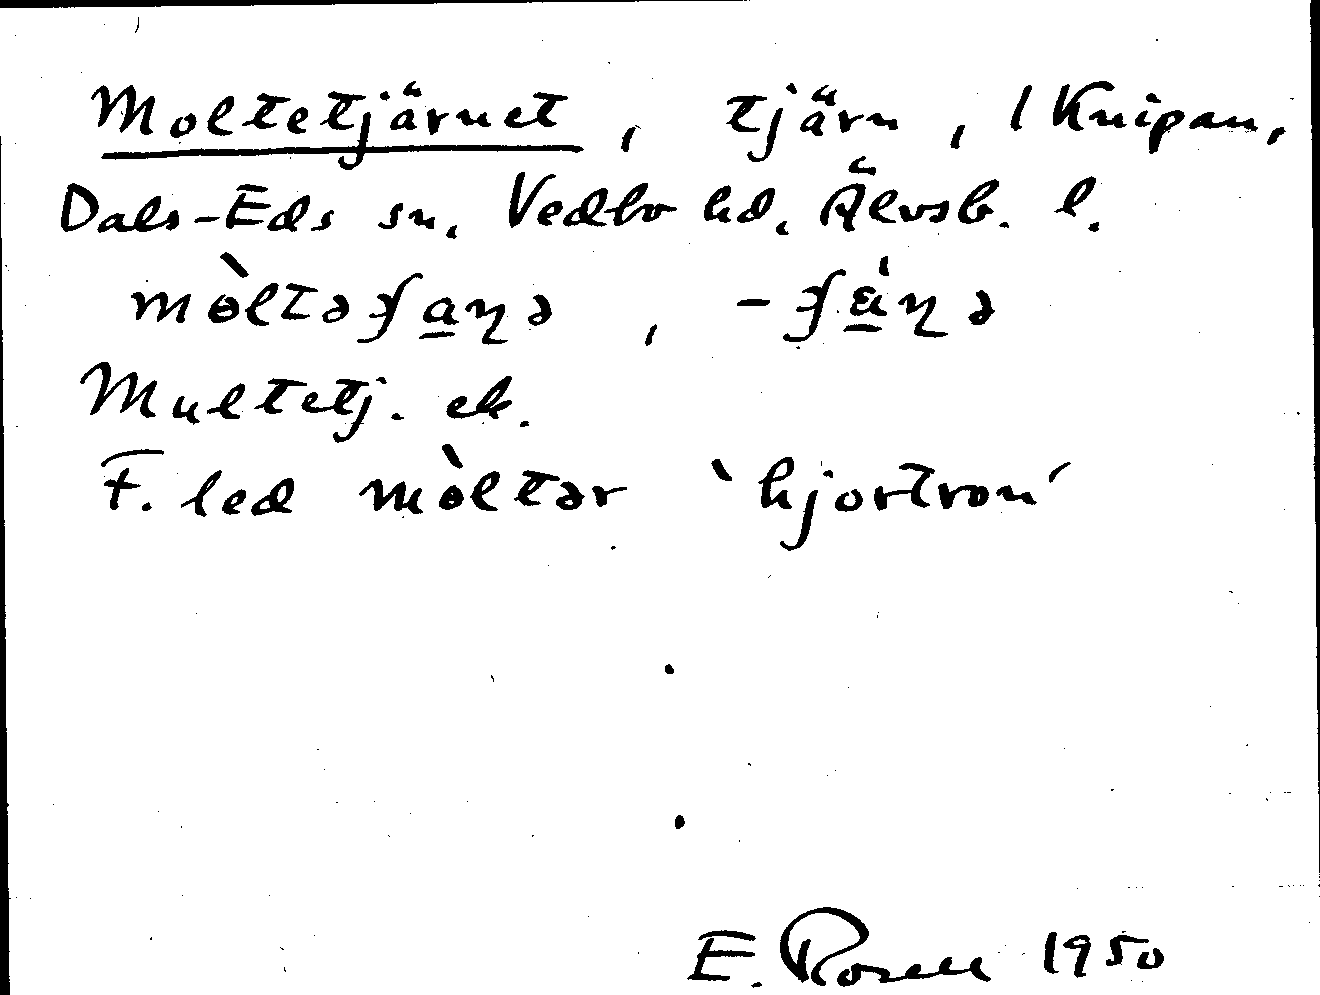 Moltetjärnet, tjärn, 1 Knipan,
Dals-Eds sn, Vedbo hd, Älvsb. l.
mɵ̀ltəʃa̲ɳə, -ʃä̲́ɳə
Multetj. ek.
F. led mɵ̀ltər 'hjortron'
E. Rosell 1950